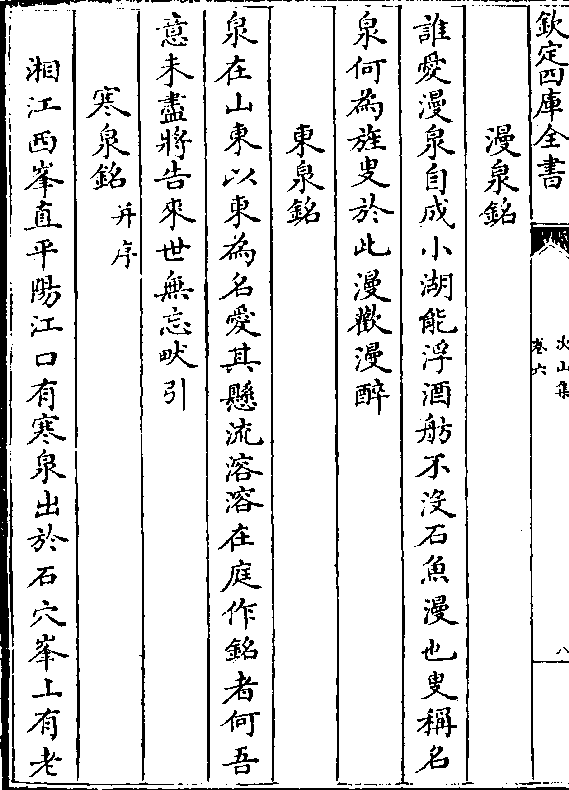 欽定四庫全書
次山集
卷六
八
漫泉銘
誰愛漫泉自成小湖能浮酒舫不沒石魚漫也叟稱名
泉何為旌叟於此漫歡漫醉
東泉銘
泉在山東以東為名愛其懸流溶溶在庭作銘者何吾
意未盡將告來世無忘畎引
寒泉銘 并序
湘江西峯直平陽江口有寒泉出於石穴峯上有老